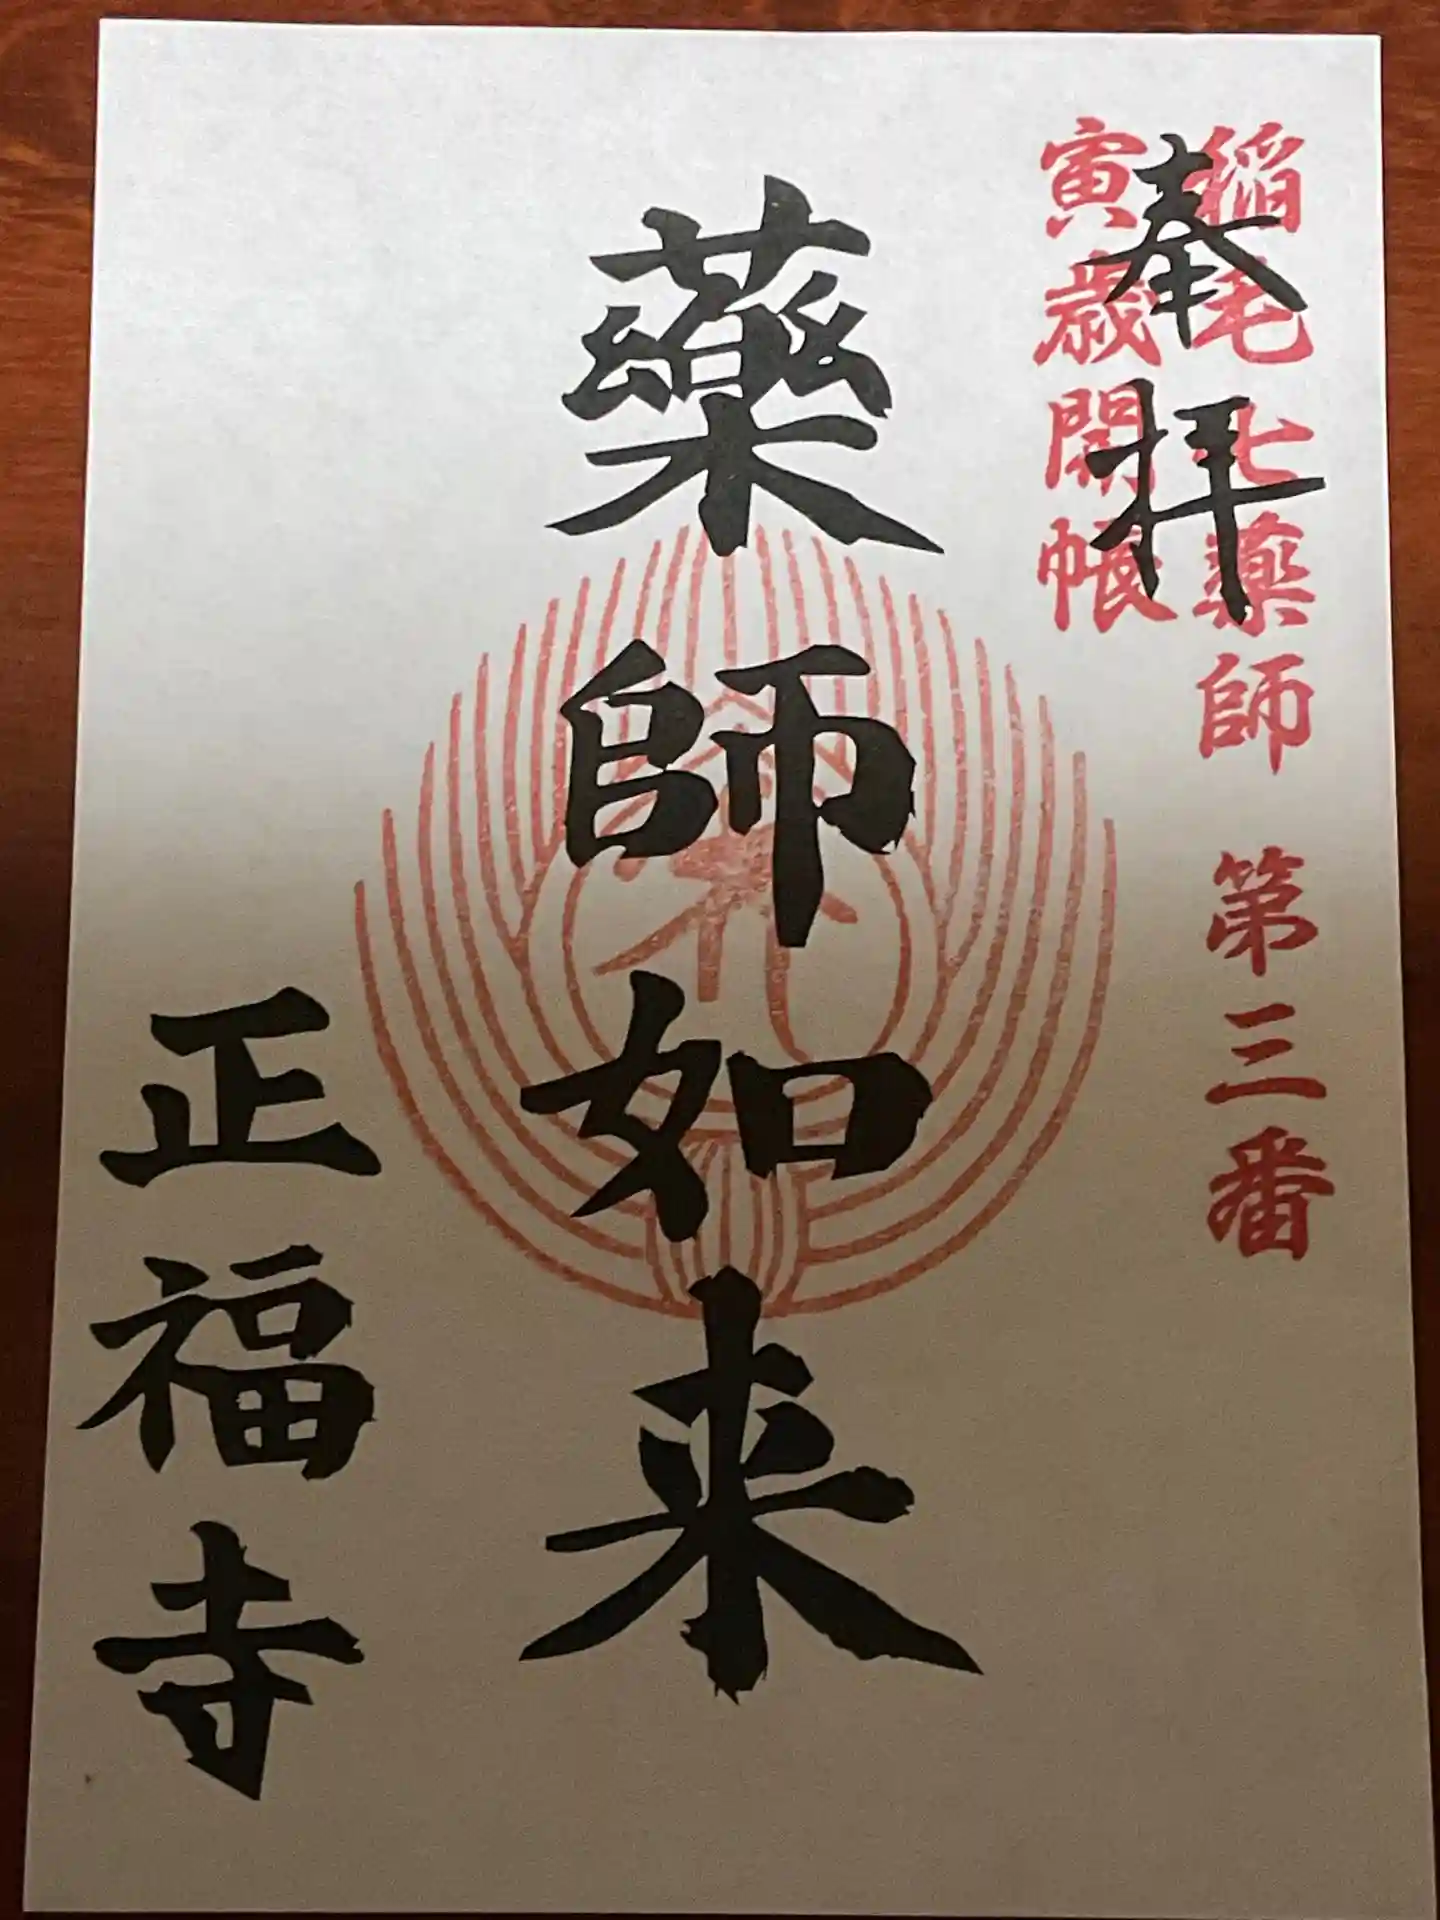 稲毛七薬師 第三番
奉拝
寅歳開帳
藥師如来
正福寺